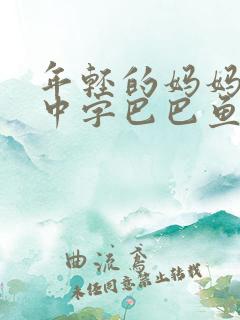 年轻的妈妈
中字巴巴鱼
曲流鸢
未经同意禁止转载